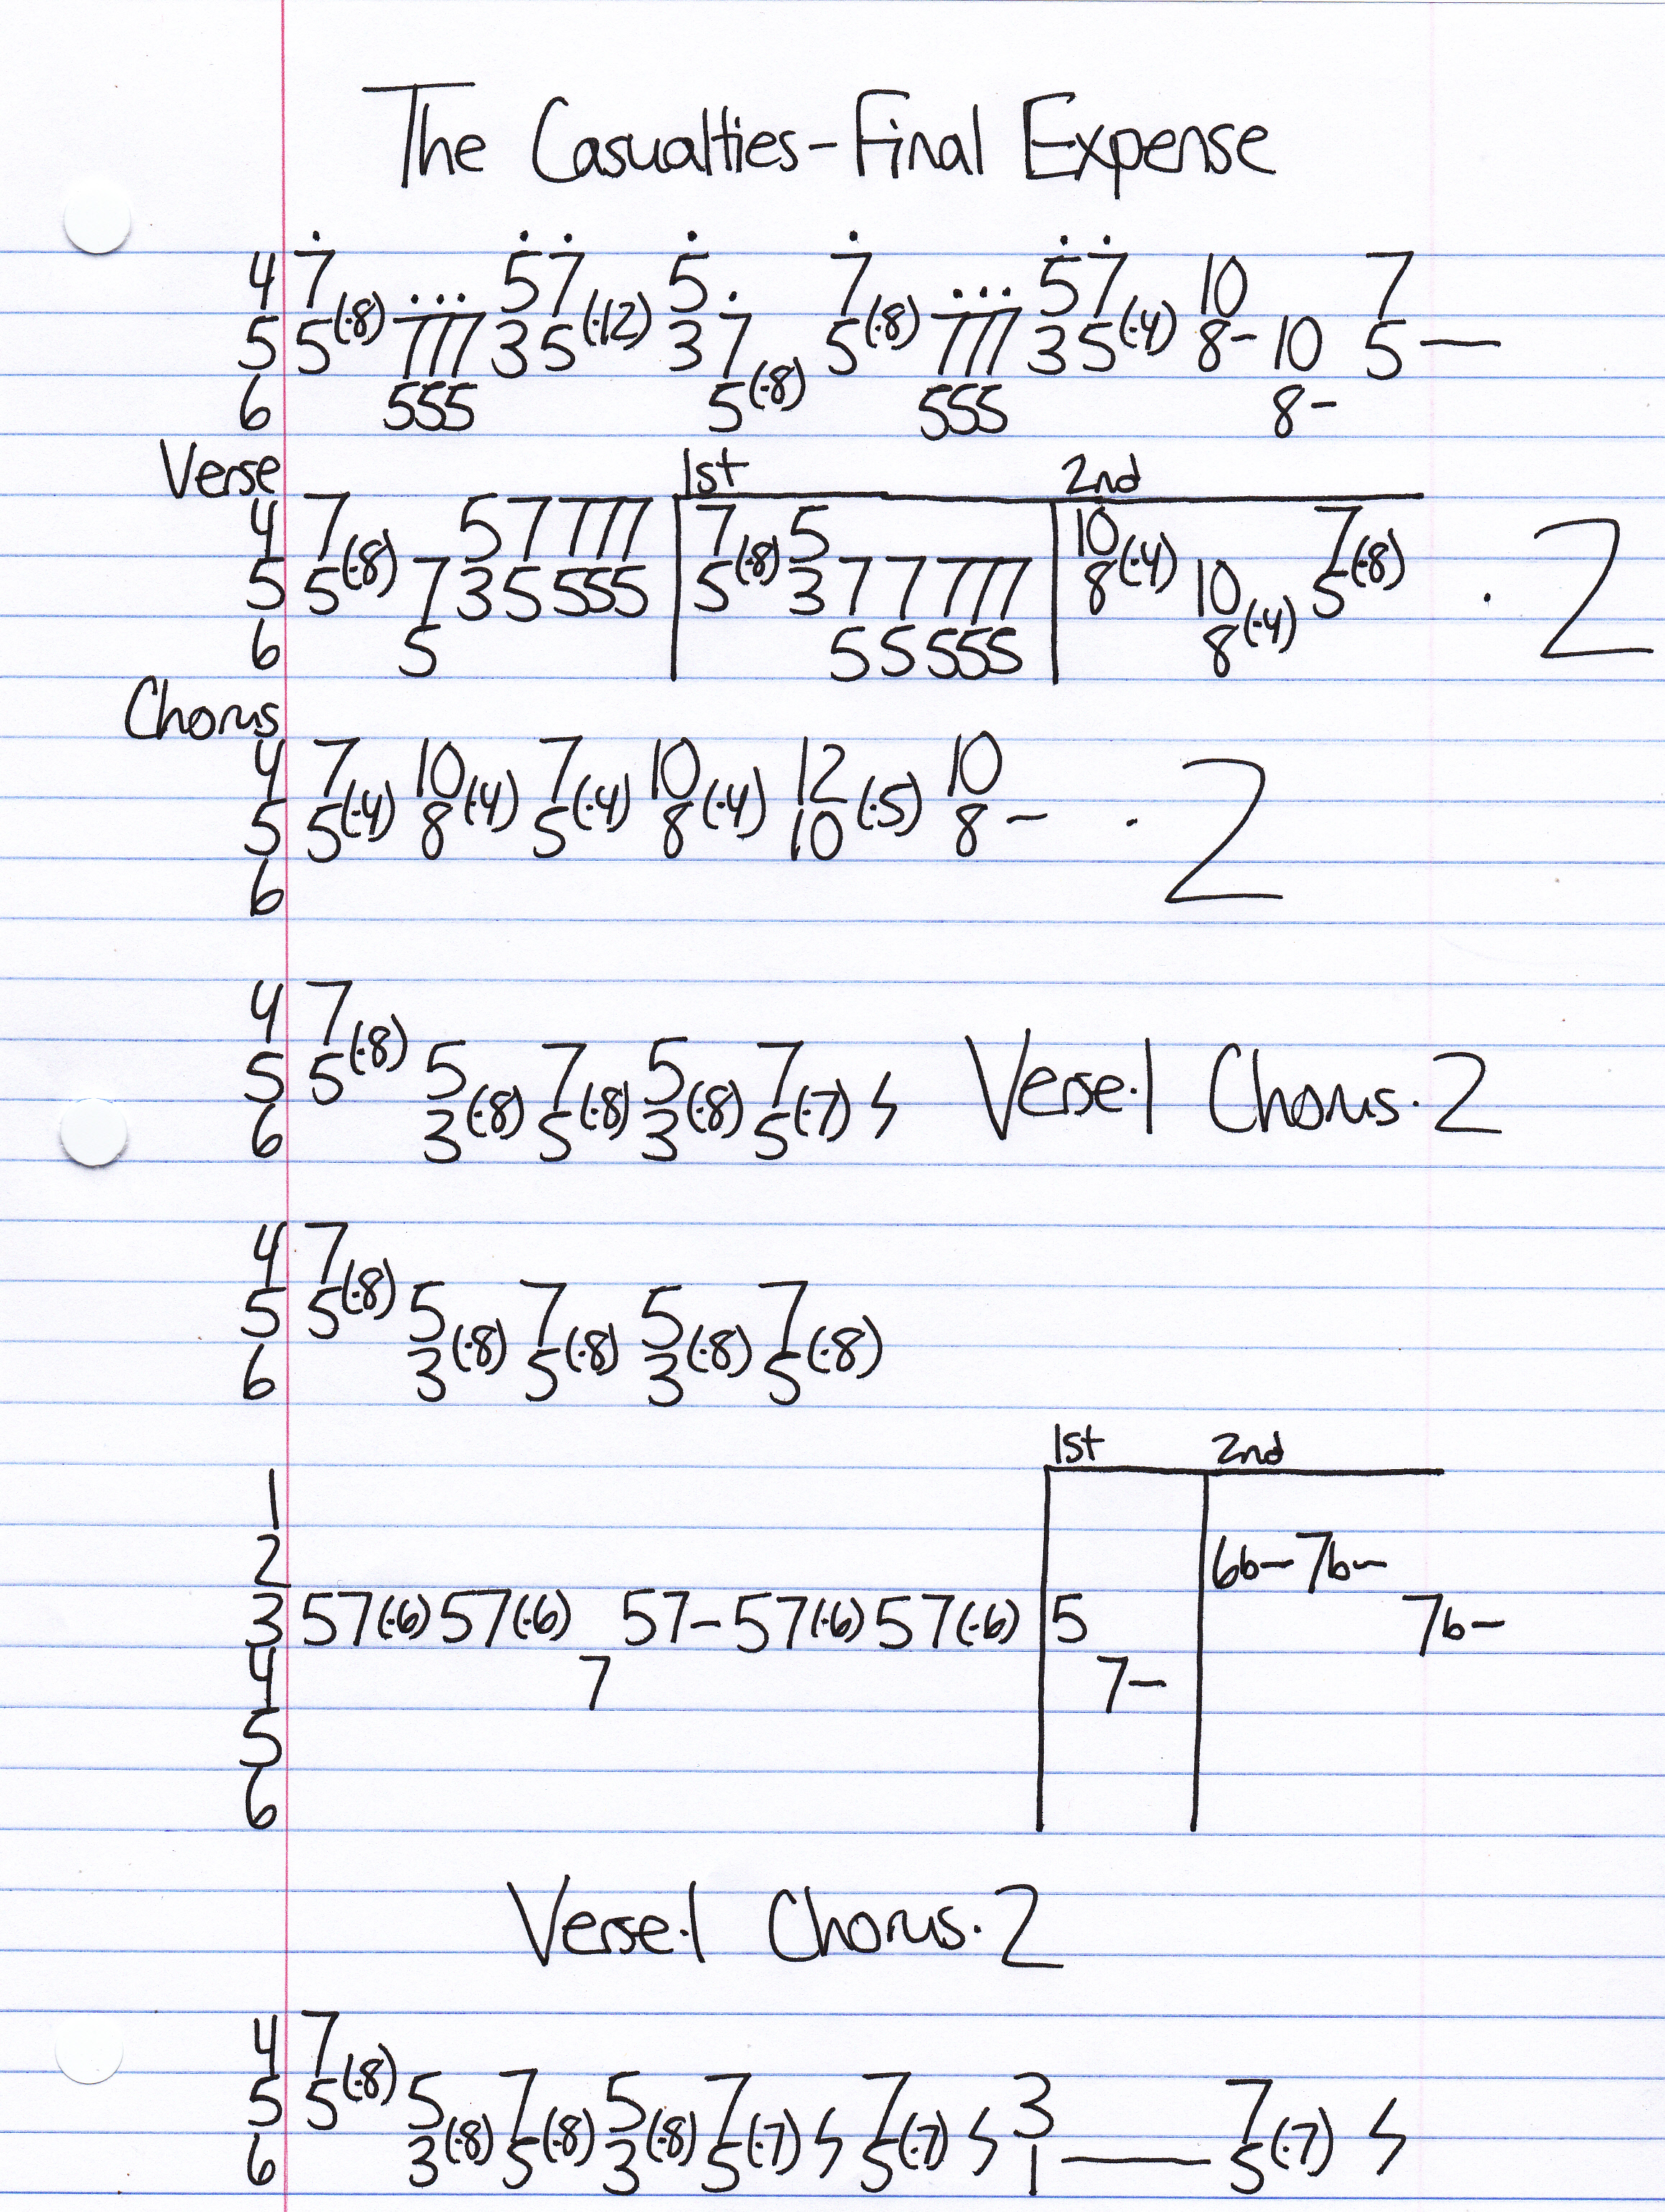 The Casualties-Final Expense
4 7 57 5 7 57 10 7
5 5(·8) 777 35(·12) 3 7 5(·8) 777 35(·4) 8- 10 5—
6 555 5(·8) 555 8-
Verse 1st 2nd
4 7 57777 7 5 10 7
5 5(·8) 7 35555 5(·8) 3 77777 8(·4) 10 5(·8) · 2
6 5 55555 8(·4)
Chorus
4 7 10 7 10 12 10
5 5(·4) 8(·4) 5(·4) 8(·4) 10(·5) 8- · 2
6
4 7
5 5(·8) 5 7 5 7 Verse·1 Chorus·2
6 3(·8) 5(·8) 3(·8) 5(·7)
4 7
5 5(·8) 5 7 5 7
6 3(·8) 5(·8) 3(·8) 5(·8)
1st 2nd
1
2 6b-7b-
3 57(·6)57(·6) 57-57(·6)57(·6) 5 7b-
4 7 7-
5
6
Verse·1 Chorus·2
4 7
5 5(·8) 5 7 5 7 7 3 7
6 3(·8) 5(·8) 3(·8) 5(·7) 5(·7) 1— 5(·7)